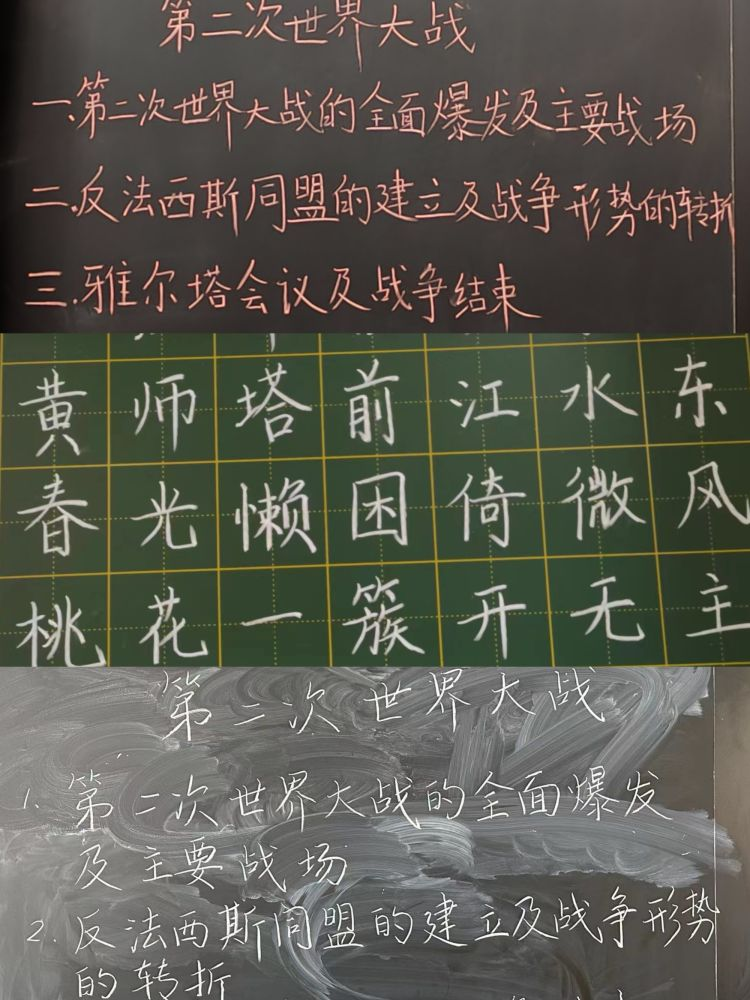 第二次世界大战
一.第二次世界大战的全面爆发及主要战场
二.反法西斯同盟的建立及战争形势的转折
三.雅尔塔会议及战争结束
黄师塔前江水东
春光懒困倚微风
桃花一簇开无主
第二次世界大战
1. 第二次世界大战的全面爆发
及主要战场
2. 反法西斯同盟的建立及战争形势
的转折